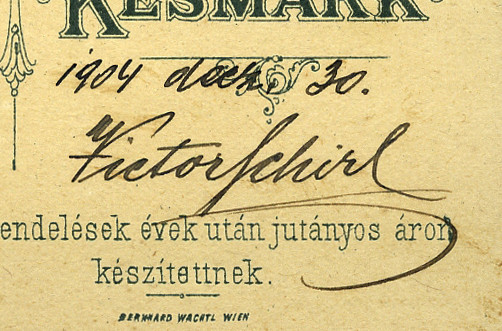 KÉSMÁRK
1904 decz. 30.
Victor Schirl
endelések évek után jutányos áron
készitettnek.
BERNHARD WACHTL WIEN